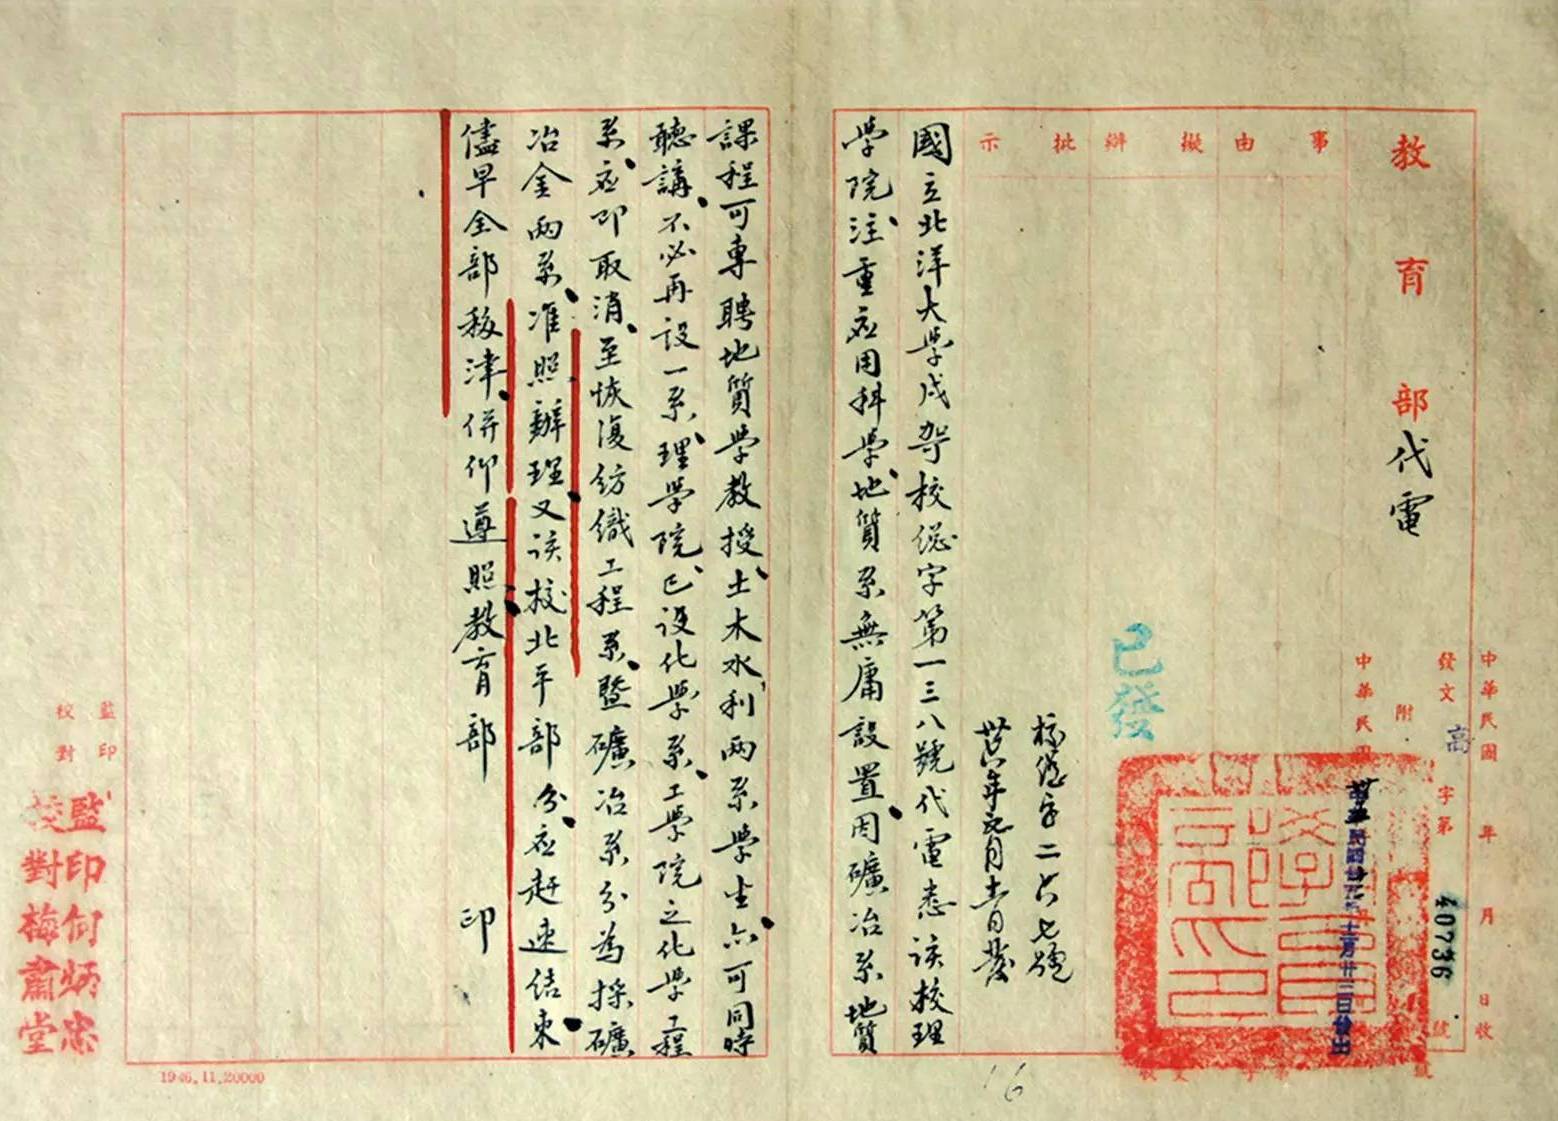 教育部代電
中華民國 年 月 日收
發文 高 字第 40736 號
附
中華民國
中華民國卅五年十二月廿二日發出
事由擬辦批示
已發
校總字二六七號
卅六年元月十一日發
國立北洋大學戌哿校總字第一三八號代電悉該校理
學院注重應用科學地質系無庸設置因礦冶系地質
課程可專聘地質學教授土木水利兩系學生亦可同時
聽講不必再設一系理學院已設化學系工學院之化學工程
系應即取消至恢復紡織工程系暨礦冶系分為採礦
冶金兩系准照辦理又該校北平部分應赶速結束
儘早全部移津併仰遵照教育部 印
監印
校對
監印何炳忠
校對梅肅堂
1946.11.20000
16